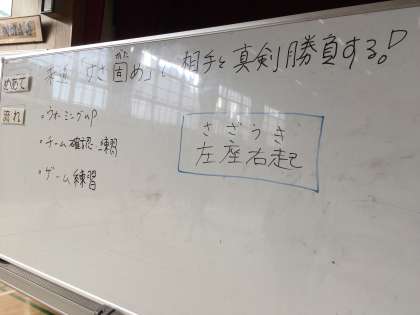 めあて
柔道「けさ固め」で相手と真剣勝負する。
がた
流れ
・ウォーミングUP
・チーム確認 練習
・ゲーム練習
さ ざ う き
左座右起